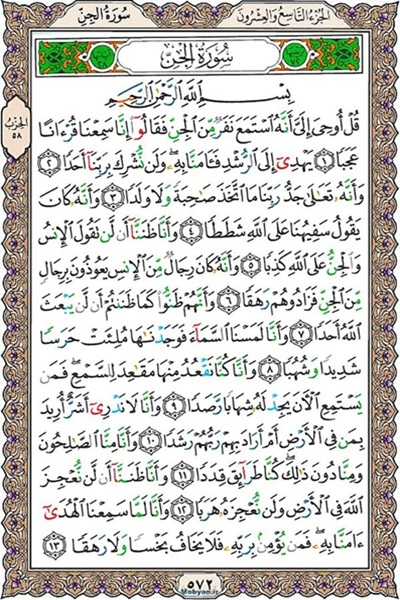 الجزء التاسع والعشرون
سورة الجن
الحزب
٥٨
سورة الجن
بسم الله الرحمن الرحيم
قُلْ أُوحِىَ إِلَىَّ أَنَّهُ ٱسْتَمَعَ نَفَرٌ مِّنَ ٱلْجِنِّ فَقَالُوٓا۟ إِنَّا سَمِعْنَا قُرْءَانًا
عَجَبًا ﴿١﴾ يَهْدِىٓ إِلَى ٱلرُّشْدِ فَـَٔامَنَّا بِهِۦ ۖ وَلَن نُّشْرِكَ بِرَبِّنَآ أَحَدًا ﴿٢﴾
وَأَنَّهُۥ تَعَٰلَىٰ جَدُّ رَبِّنَا مَا ٱتَّخَذَ صَٰحِبَةً وَلَا وَلَدًا ﴿٣﴾ وَأَنَّهُۥ كَانَ
يَقُولُ سَفِيهُنَا عَلَى ٱللَّهِ شَطَطًا ﴿٤﴾ وَأَنَّا ظَنَنَّآ أَن لَّن تَقُولَ ٱلْإِنسُ
وَٱلْجِنُّ عَلَى ٱللَّهِ كَذِبًا ﴿٥﴾ وَأَنَّهُۥ كَانَ رِجَالٌ مِّنَ ٱلْإِنسِ يَعُوذُونَ بِرِجَالٍ
مِّنَ ٱلْجِنِّ فَزَادُوهُمْ رَهَقًا ﴿٦﴾ وَأَنَّهُمْ ظَنُّوا۟ كَمَا ظَنَنتُمْ أَن لَّن يَبْعَثَ
ٱللَّهُ أَحَدًا ﴿٧﴾ وَأَنَّا لَمَسْنَا ٱلسَّمَآءَ فَوَجَدْنَٰهَا مُلِئَتْ حَرَسًا
شَدِيدًا وَشُهُبًا ﴿٨﴾ وَأَنَّا كُنَّا نَقْعُدُ مِنْهَا مَقَٰعِدَ لِلسَّمْعِ ۖ فَمَن
يَسْتَمِعِ ٱلْـَٔانَ يَجِدْ لَهُۥ شِهَابًا رَّصَدًا ﴿٩﴾ وَأَنَّا لَا نَدْرِىٓ أَشَرٌّ أُرِيدَ
بِمَن فِى ٱلْأَرْضِ أَمْ أَرَادَ بِهِمْ رَبُّهُمْ رَشَدًا ﴿١٠﴾ وَأَنَّا مِنَّا ٱلصَّٰلِحُونَ
وَمِنَّا دُونَ ذَٰلِكَ ۖ كُنَّا طَرَآئِقَ قِدَدًا ﴿١١﴾ وَأَنَّا ظَنَنَّآ أَن لَّن نُّعْجِزَ
ٱللَّهَ فِى ٱلْأَرْضِ وَلَن نُّعْجِزَهُۥ هَرَبًا ﴿١٢﴾ وَأَنَّا لَمَّا سَمِعْنَا ٱلْهُدَىٰٓ
ءَامَنَّا بِهِۦ ۖ فَمَن يُؤْمِنۢ بِرَبِّهِۦ فَلَا يَخَافُ بَخْسًا وَلَا رَهَقًا ﴿١٣﴾
٥٧٢
Mobyan.ir